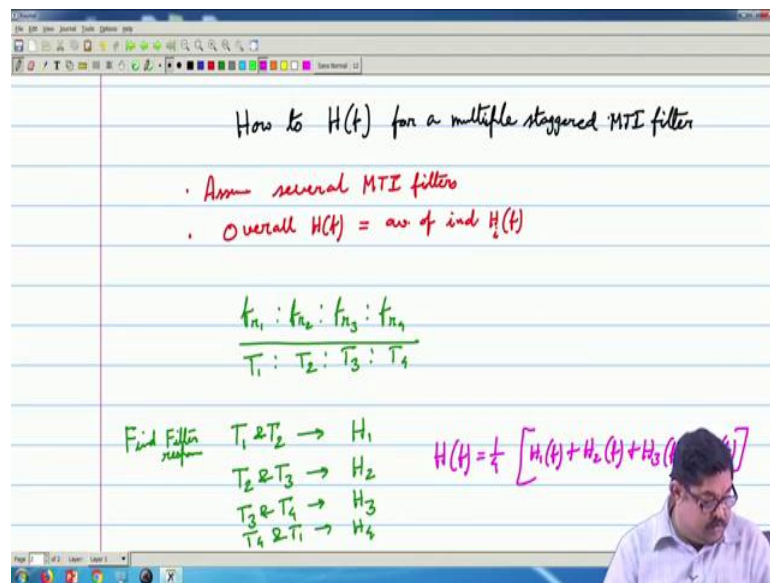 File Edit View Journal Tools Options Help
Sans Normal 12
How to H(f) for a multiple staggered MTI filter
· Assume several MTI filters
· Overall H(f) = av. of ind H_i(f)
f_{r_1} : f_{r_2} : f_{r_3} : f_{r_4}
T_1 : T_2 : T_3 : T_4
Find Filter
T_1 & T_2 → H_1
T_2 & T_3 → H_2
T_3 & T_4 → H_3
T_4 & T_1 → H_4
H(f) = 1/4 [H_1(f) + H_2(f) + H_3(
Page 2 of 2 Layer: Layer 1